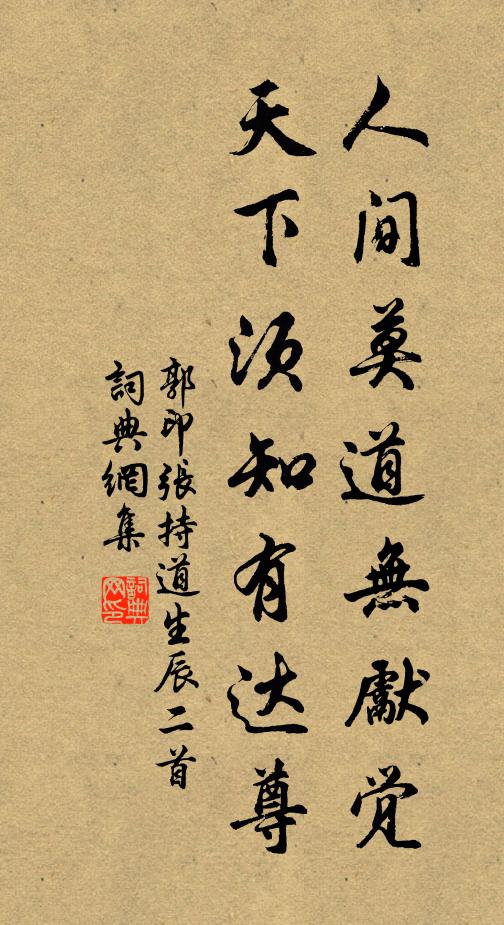 人间莫道無獻觉
天下须知有达尊
郭印張持道生辰二首
詞典網集
詞典网印